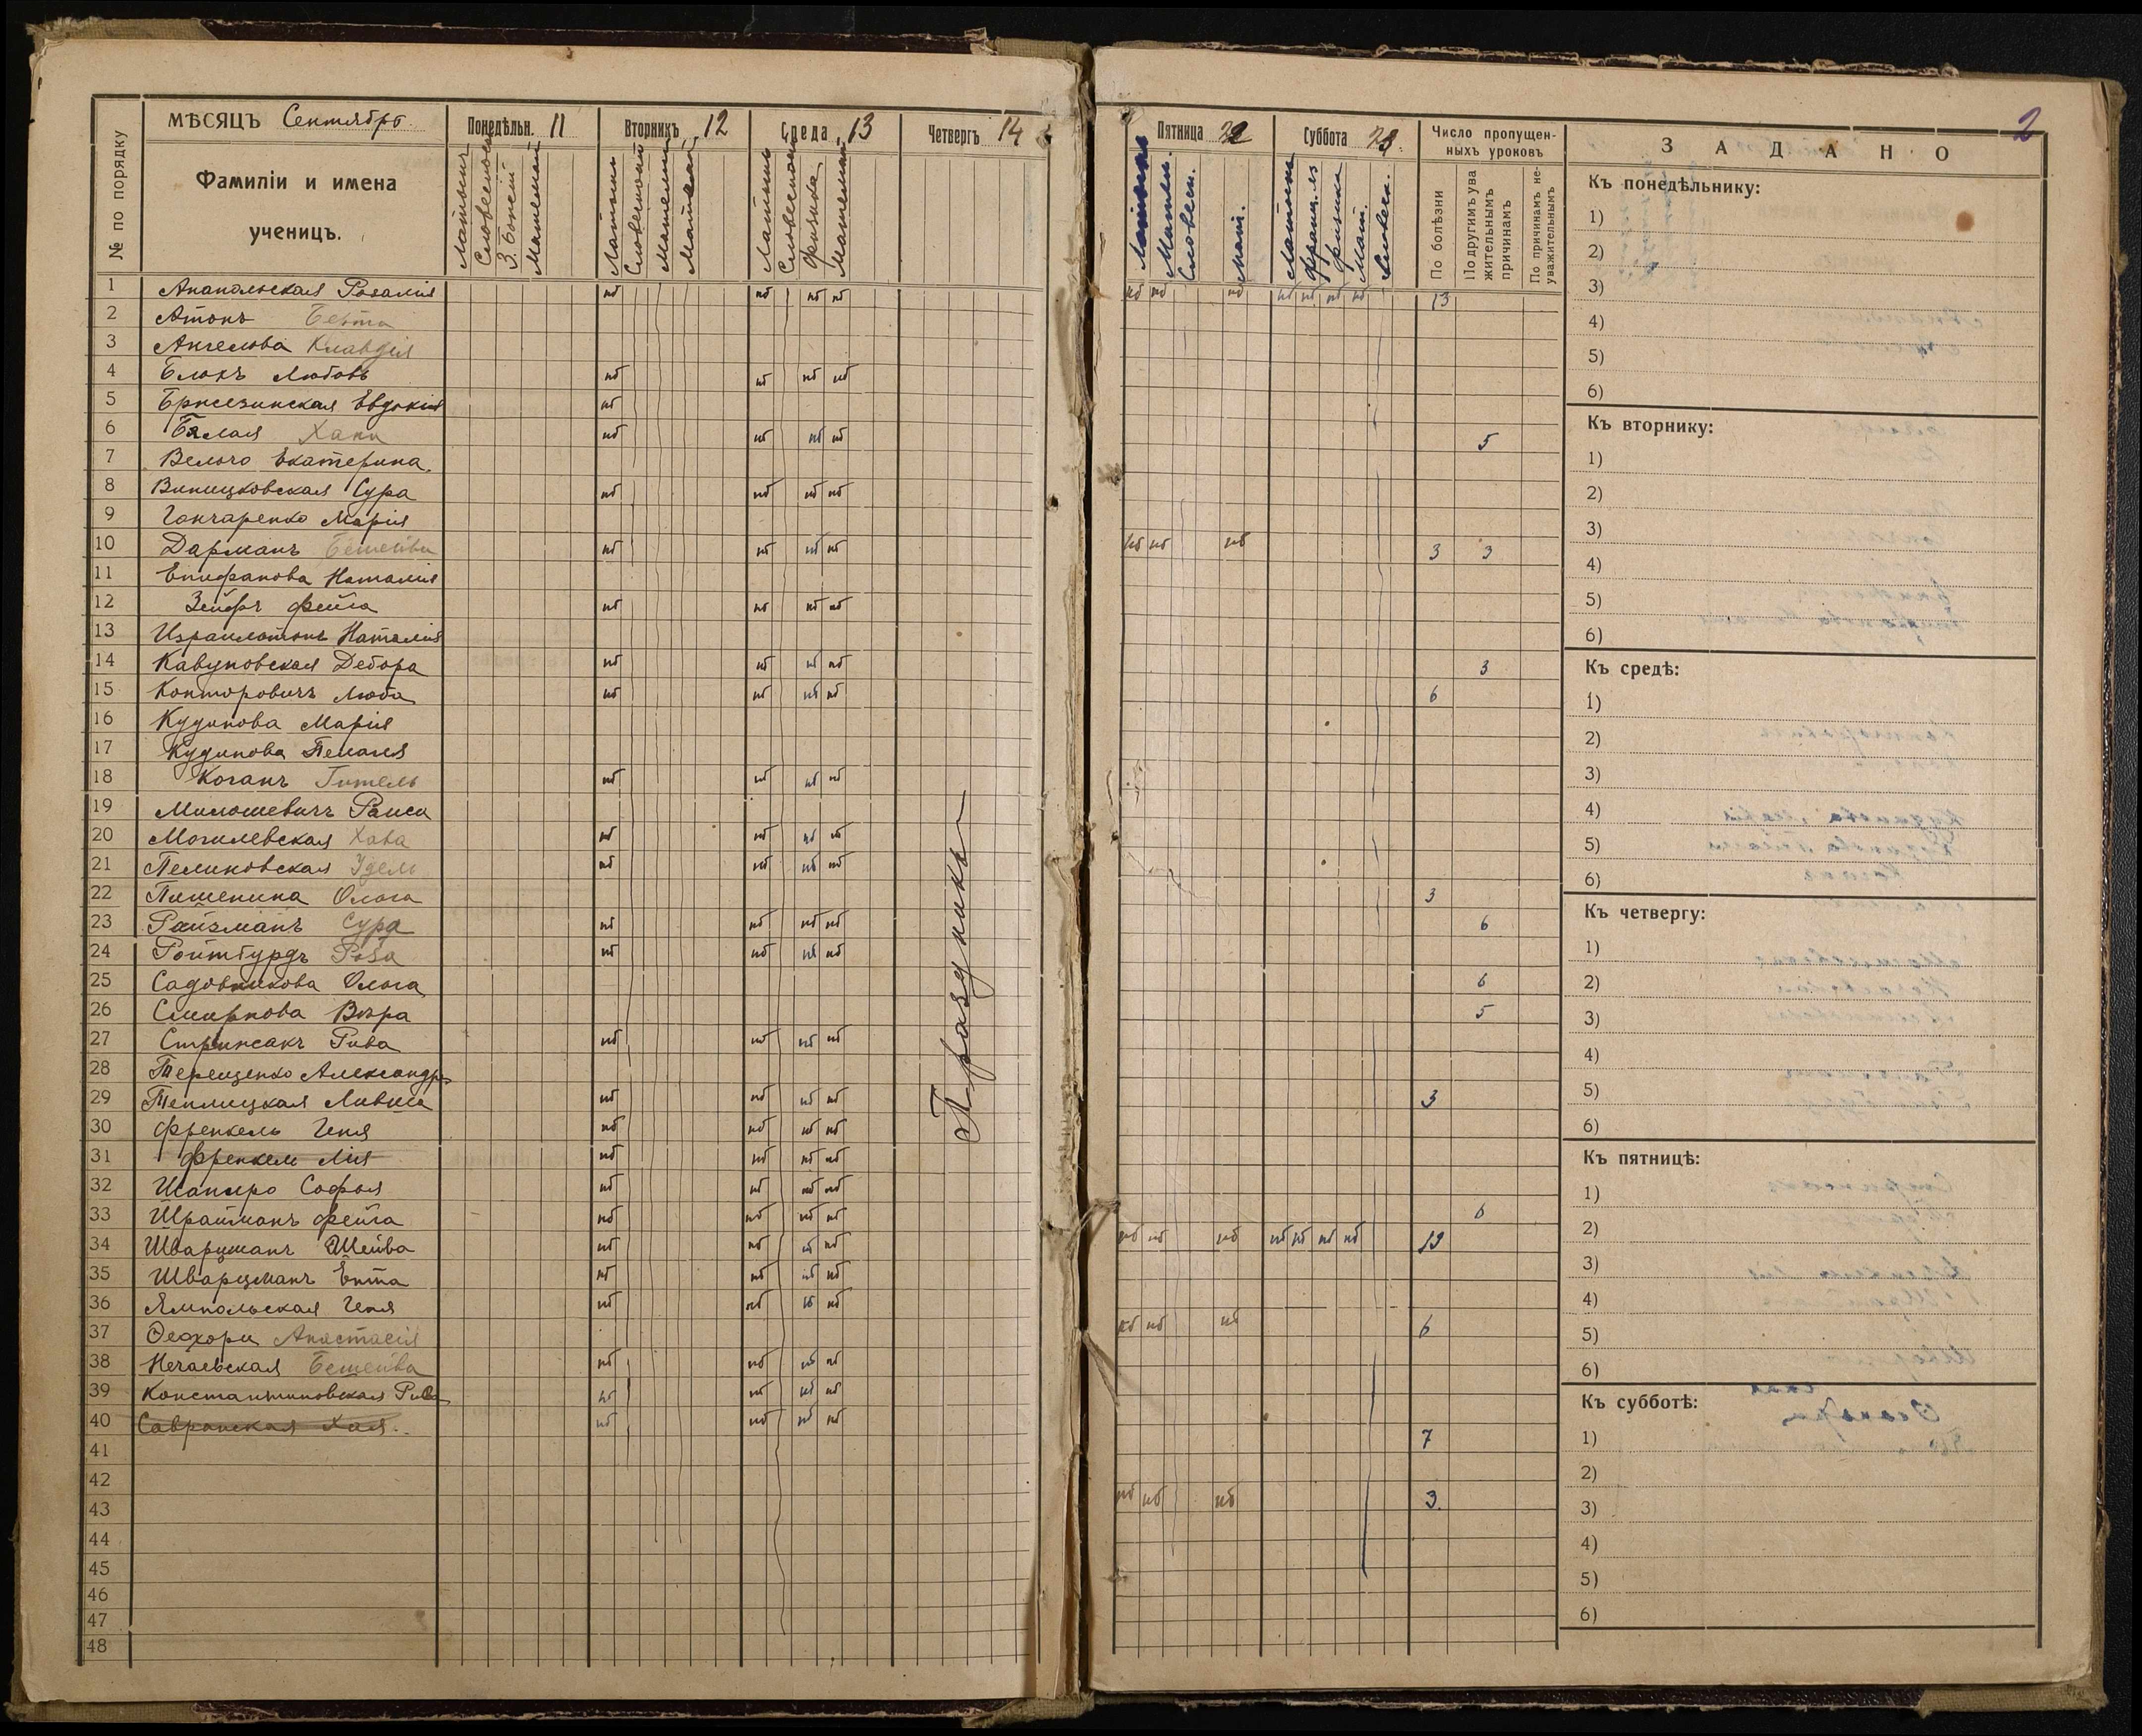 МѢСЯЦЪ Сентябрь.
№ по порядку
Фамиліи и имена
ученицъ.
Понедѣльн. 11
Вторникъ 12
Среда 13
Четвергъ 14
Латынь
Словесность
З. Божій
Математ
Латынь
Словесность
Латынь
Словесность
физика
Математ
1 Анапольская Розалія нб нб нб нб
2 Атонъ Берта
3 Ангелова Клавдія
4 Блокъ Любовь нб нб нб нб
5 Бржезинская Евдокія нб
6 Бялая Хана нб нб нб нб
7 Вельго Екатерина.
8 Виницковская Сура нб нб нб нб
9 Гончаренко Марія
10 Дарманъ Бешейва нб нб нб нб
11 Епифанова Наталія
12 Зейфъ Фейга нб нб нб нб
13 Израилотонъ Наталія
14 Кавуновская Дебора нб нб нб нб
15 Конторовичъ Люба нб нб нб нб
16 Кудинова Марія
17 Кудинова Пелагея
18 Коганъ Гитель нб нб нб нб
19 Милошевичъ Раиса
20 Могилевская Хава нб нб нб нб
21 Пеликовская Удель нб нб нб нб
22 Пишенина Ольга
23 Райзманъ Сура нб нб нб нб
24 Ройтбурдъ Роза нб нб нб нб
25 Садовникова Ольга
26 Смирнова Вѣра
27 Стрижакъ Рива нб нб нб нб
28 Терещенко Александра
29 Теплицкая Ливша нб нб нб нб
30 Френкель Геня нб нб нб нб
31 Френкель Лія нб нб нб нб
32 Шапиро Софья нб нб нб нб
33 Шрайманъ Фейга нб нб нб нб
34 Шварцманъ Шейва нб нб нб нб
35 Шварцманъ Ента нб нб нб нб
36 Ямпольская Геня нб нб нб нб
37 Ѳеохари Анастасія
38 Нечаевская Бешейва нб нб нб нб
39 Константиновская Рива нб нб нб нб
40 Савранская Хая. нб нб нб нб
41
42
43
44
45
46
47
48
Праздникъ
2
Пятница 22
Суббота 23.
Число пропущен-
ныхъ уроковъ
Латынь
Матем.
Словесн.
Мат.
Латынь
Франц. яз
Физика
Мат.
Словесн.
По болѣзни
По другимъ ува
жительнымъ
причинамъ
По причинамъ не-
уважительнымъ
нб нб нб нб нб нб нб 13
5
нб нб нб 3 3
3
6
3
6
6
5
3
6
нб нб нб нб нб нб нб 19
нб нб нб 6
7
нб нб нб 3.
З А Д А Н О
Къ понедѣльнику:
1)
2)
3)
4)
5)
6)
Къ вторнику:
1)
2)
3)
4)
5)
6)
Къ средѣ:
1)
2)
3)
4)
5)
6)
Къ четвергу:
1)
2)
3)
4)
5)
6)
Къ пятницѣ:
1)
2)
3)
4)
5)
6)
Къ субботѣ:
1)
2)
3)
4)
5)
6)